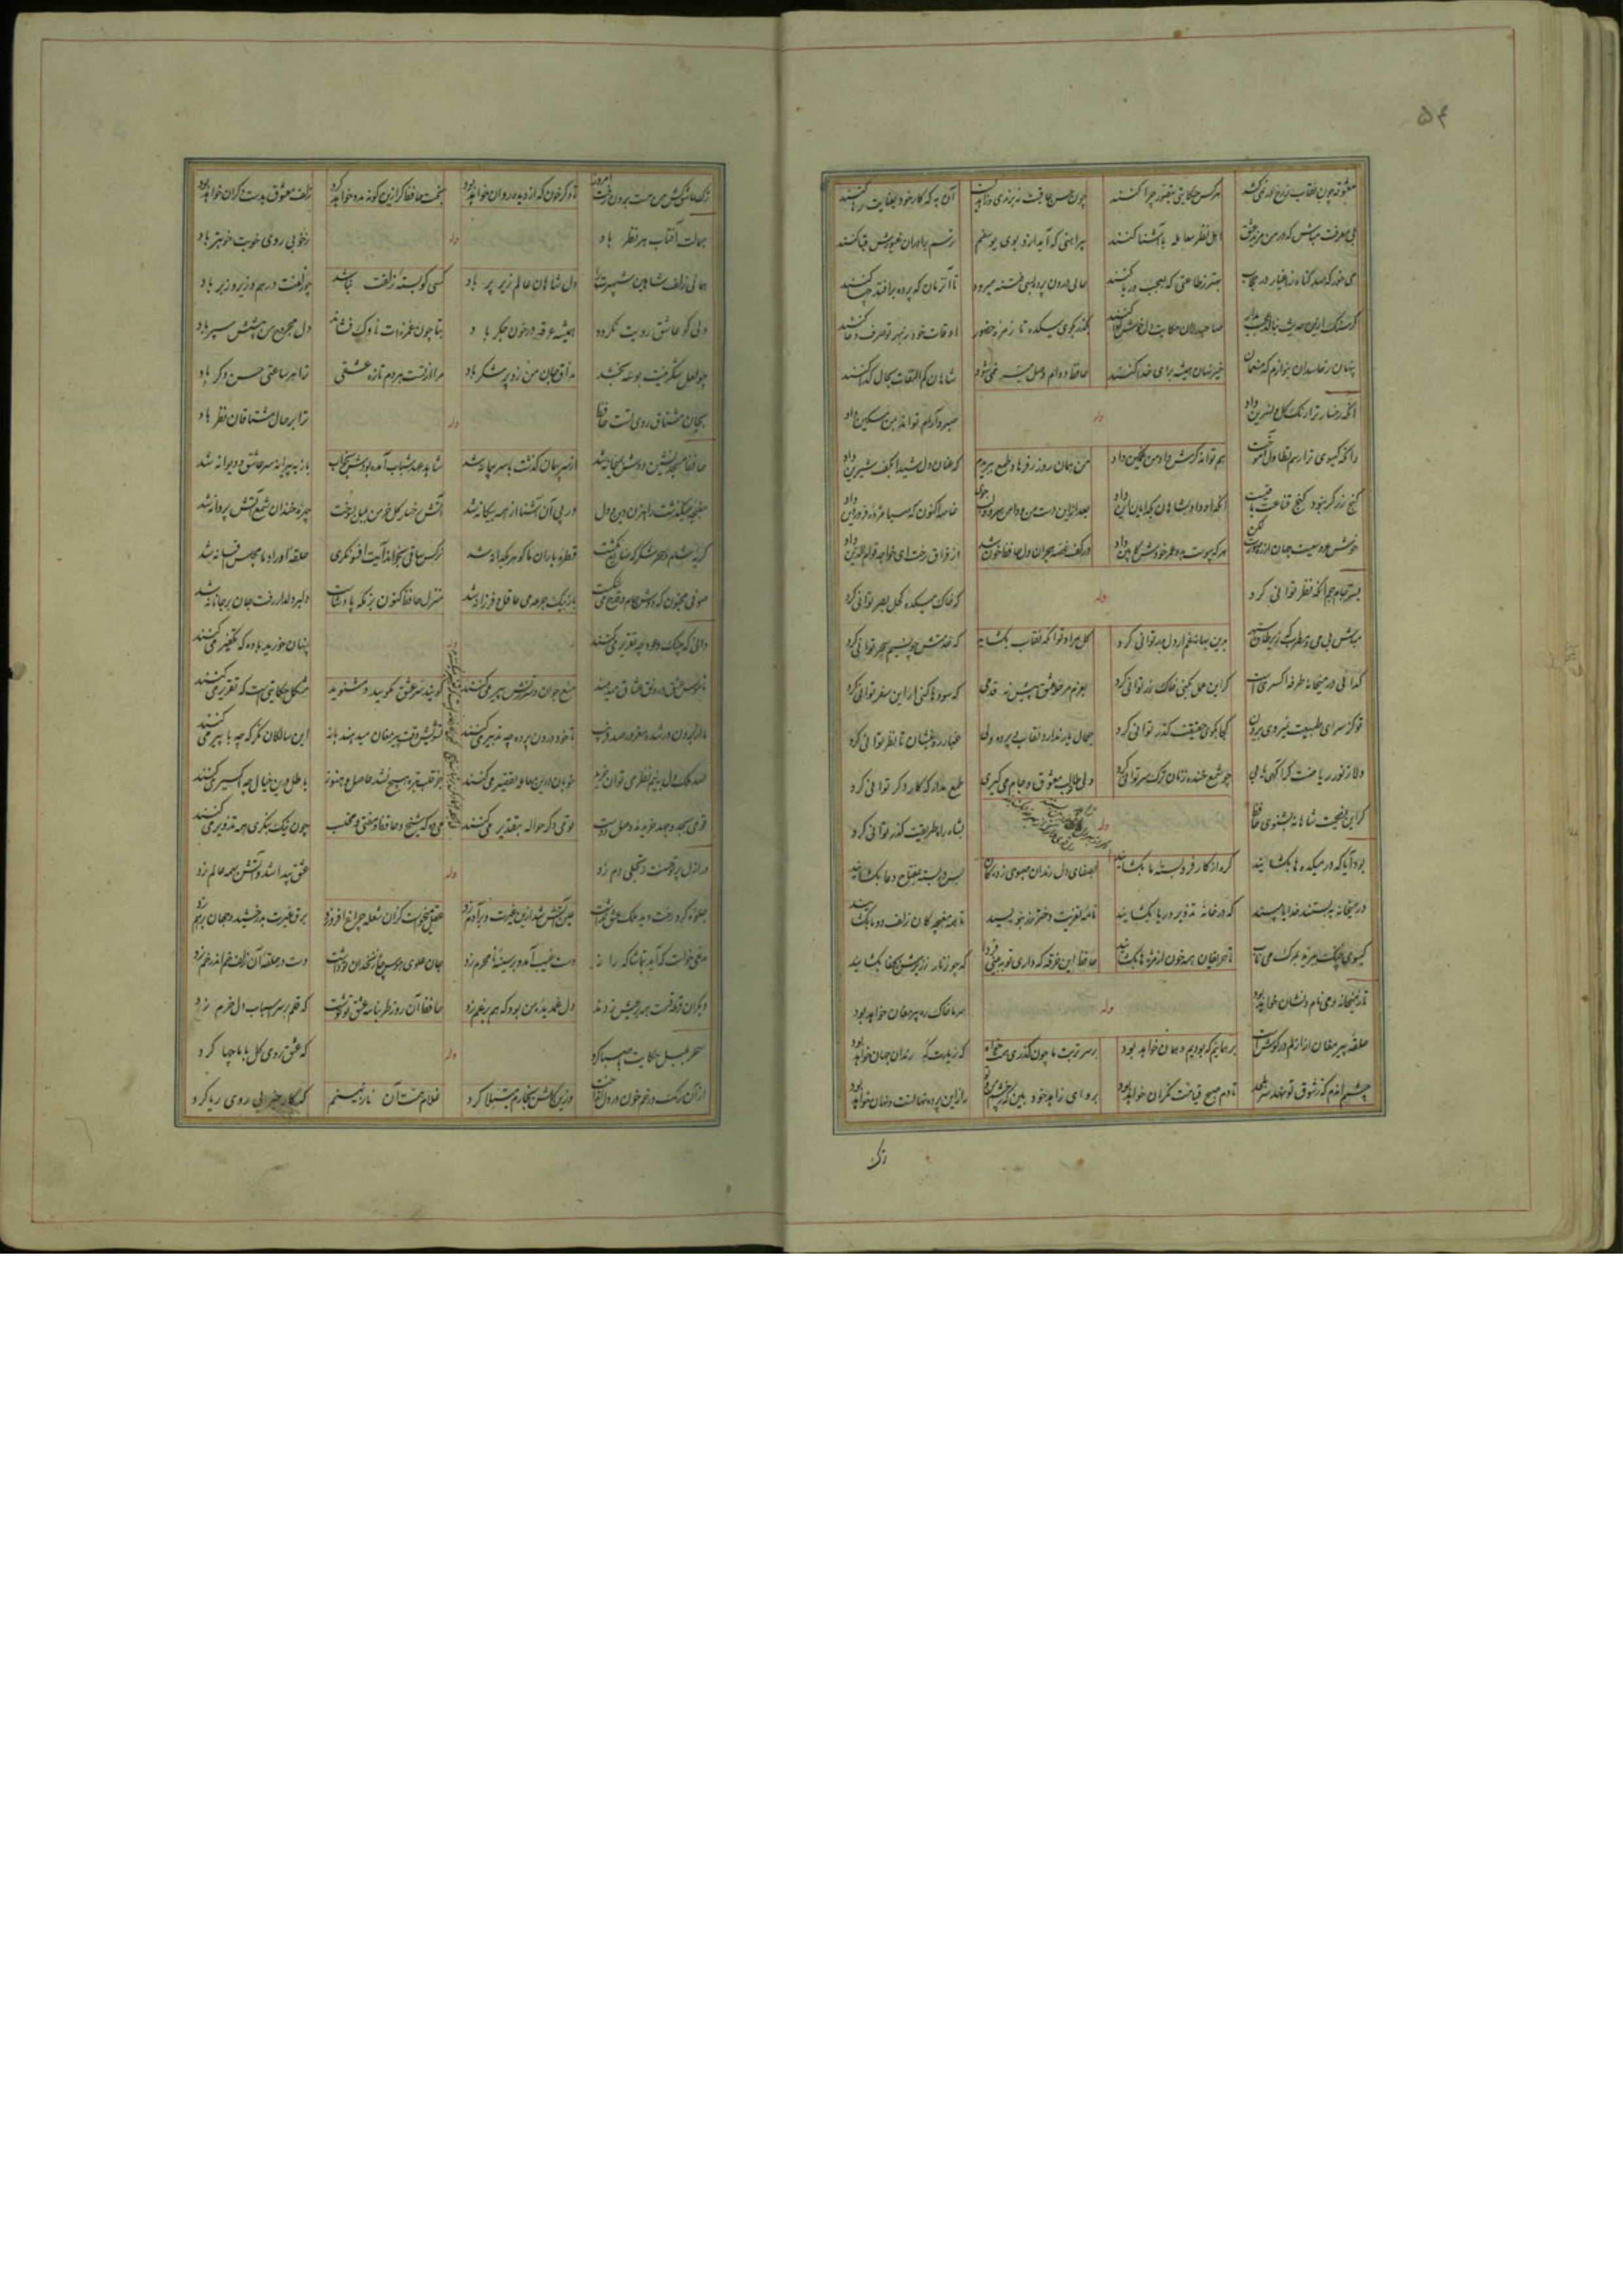 ۵۴
معشوقه چون نقاب ز رخ در نمی کشد هر کس حکایتی بتصور چرا کنند چون حسن عاقبت نه برندی و زاهدیست آن به که کار خود بعنایت رها کنند
بی معرفت مباش که در من مزید عشق اهل نظر معامله با آشنا کنند پیراهنی که آید ازو بوی یوسفم ترسم برادران غیورش قبا کنند
می خور که صد گناه ز اغیار در حجاب بهتر ز طاعتی که بعجب و ریا کنند حالی درون پرده بسی فتنه میرود تا آن زمان که پرده برافتد چها کنند
گر سنگ ازین حدیث بنالد عجب مدار صاحبدلان حکایت دل خوش ادا کنند بگذر بکوی میکده تا زمره حضور اوقات خود ز بهر تو صرف دعا کنند
پنهان ز حاسدان بخودم خوان که منعمان خیر نهان برای خدا کنند حافظ دوام وصل میسر نمی شود شاهان کم التفات بحال گدا کنند
آنکه رخسار ترا رنگ گل و نسرین داد وله صبر و آرام تواند بمن مسکین داد
وانکه گیسوی ترا رسم تطاول آموخت هم تواند کرمش داد من غمگین داد من همان روز ز فرهاد طمع ببریدم که عنان دل شیدا بکف شیرین داد
گنج زر گر نبود کنج قناعت باقیست آنکه آن داد بشاهان بگدایان این داد بعد ازین دست من و دامن سرو و لب جوی خاصه اکنون که صبا مژده فروردین داد
خوش عروسیست جهان از ره صورت لیکن هر که پیوست بدو عمر خودش کابین داد در کف غصه دوران دل حافظ خون شد از فراق رخت ای خواجه قوام الدین داد
بسر جام جم آنکه نظر توانی کرد وله که خاک میکده کحل بصر توانی کرد
مباش بی می و مطرب که زیر طاق سپهر بدین ترانه غم از دل بدر توانی کرد گل مراد تو آنگه نقاب بگشاید که خدمتش چو نسیم سحر توانی کرد
گدائی در میخانه طرفه اکسیریست گر این عمل بکنی خاک زر توانی کرد بعزم مرحله عشق پیش نه قدمی که سودها کنی ار این سفر توانی کرد
تو کز سرای طبیعت نمیروی بیرون کجا بکوی حقیقت گذر توانی کرد جمال یار ندارد نقاب و پرده ولی غبار ره بنشان تا نظر توانی کرد
دلا ز نور ریاضت گر آگهی یابی چو شمع خنده زنان ترک سر توانی کرد ولی تو تا لب معشوق و جام می گیری طمع مدار که کار دگر توانی کرد
گر این نصیحت شاهانه بشنوی حافظ وله بشاه راه طریقت گذر توانی کرد
بود آیا که در میکده ها بگشایند گره از کار فروبسته ما بگشایند بصفای دل رندان صبوحی زدگان بس در بسته بمفتاح دعا بگشایند
در میخانه ببستند خدایا مپسند که در خانه تزویر و ریا بگشایند نامه تعزیت دختر رز بنویسید تا همه مغبچگان زلف دو تا بگشایند
گیسوی چنگ ببرید بمرگ می ناب تا حریفان همه خون از مژه ها بگشایند حافظ این خرقه که داری تو ببینی فردا که چه زنار ز زیرش بجفا بگشایند
تا ز میخانه و می نام و نشان خواهد بود وله سر ما خاک ره پیر مغان خواهد بود
حلقه پیر مغان از ازلم در گوش است بر همانیم که بودیم و همان خواهد بود بر سر تربت ما چون گذری همت خواه که زیارتگه رندان جهان خواهد بود
چشمم آندم که ز شوق تو نهد سر بلحد تا دم صبح قیامت نگران خواهد بود برو ای زاهد خودبین که ز چشم من و تو راز این پرده نهانست و نهان خواهد بود
ترک
ترک عاشق کش من مست برون رفت امروز تا دگر خون که از دیده روان خواهد بود بخت حافظ گر ازین گونه مدد خواهد کرد زلف معشوق بدست دگران خواهد بود
جمالت آفتاب هر نظر باد وله ز خوبی روی خوبت خوبتر باد
همای زلف شاهین شهپرت را دل شاهان عالم زیر پر باد کسی کو بسته زلفت نباشد چو زلفت درهم و زیر و زبر باد
دلی کو عاشق رویت نگردد همیشه غرقه در خون جگر باد بتا چون غمزه ات ناوک فشاند دل مجروح من پیشش سپر باد
چو لعل شکرینت بوسه بخشد مذاق جان من زو پرشکر باد مرا از تست هر دم تازه عشقی ترا هر ساعتی حسن دگر باد
بجان مشتاق روی تست حافظ وله ترا بر حال مشتاقان نظر باد
حافظ مسجدنشین دوش بمیخانه شد از سر پیمان گذشت با سر پیمانه شد شاهد عهد شباب آمده بودش بخواب باز به پیرانه سر عاشق و دیوانه شد
مغبچه میگذشت راهزن دین و دل در پی آن آشنا از همه بیگانه شد آتش رخسار گل خرمن بلبل بسوخت چهره خندان شمع آفت پروانه شد
گریه شام و سحر شکر که ضایع نگشت قطره باران ما گوهر یکدانه شد نرگس ساقی بخواند آیت افسونگری حلقه اوراد ما مجلس افسانه شد
صوفی مجنون که دوش جام و قدح می شکست باز بیک جرعه می عاقل و فرزانه شد منزل حافظ کنون بزمگه پادشاست دل بر دلدار رفت جان بر جانانه شد
دانی که چنگ و عود چه تقریر می کنند پنهان خورید باده که تکفیر می کنند
ناموس عشق و رونق عشاق میبرند منع جوان و سرزنش پیر می کنند گویند سر عشق مگویید و مشنوید مشکل حکایتیست که تقریر می کنند
ما از برون در شده مغرور صد فریب تا خود درون پرده چه تدبیر می کنند تشویش وقت پیر مغان میدهند باز این سالکان نگر که چه با پیر می کنند
صد ملک دل به نیم نظر می توان خرید خوبان درین معامله تقصیر می کنند جز قلب تیره هیچ نشد حاصل و هنوز باطل درین خیال که اکسیر می کنند
قومی بجد و جهد خریدند وصل دوست قومی دگر حواله بتقدیر می کنند می ده که شیخ و حافظ و مفتی و محتسب چون نیک بنگری همه تزویر می کنند
در ازل پرتو حسنت ز تجلی دم زد وله عشق پیدا شد و آتش بهمه عالم زد
جلوه کرد رخت دید ملک عشق نداشت عین آتش شد ازین غیرت و بر آدم زد عقل میخواست کزان شعله چراغ افروزد برق غیرت بدرخشید و جهان برهم زد
مدعی خواست که آید بتماشاگه راز دست غیب آمد و بر سینه نامحرم زد جان علوی هوس چاه زنخدان تو داشت دست در حلقه آن زلف خم اندر خم زد
دیگران قرعه قسمت همه بر عیش زدند دل غمدیده من بود که هم بر غم زد حافظ آن روز طربنامه عشق تو نوشت که قلم بر سر اسباب دل خرم زد
سحر بلبل حکایت با صبا کرد وله که عشق روی گل با ما چها کرد
از آن رنگ رخم خون در دل انداخت وزین گلشن بخارم مبتلا کرد غلام همت آن نازنینم که کار خیر بی روی و ریا کرد